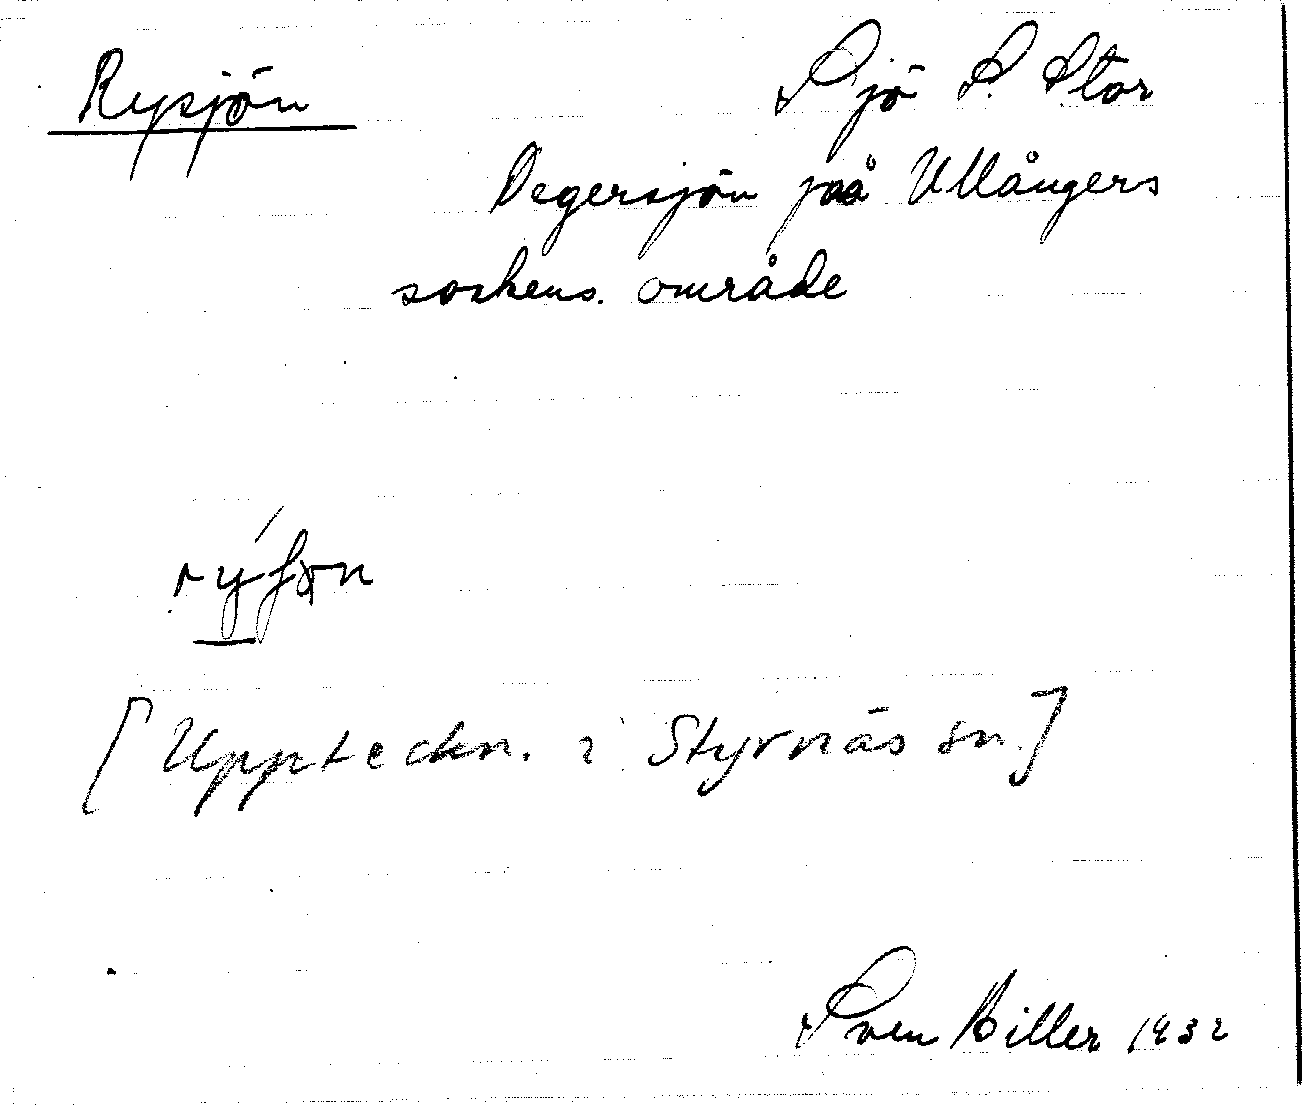 Rysjön Sjö S. Stor
Degersjön på Ullångers
sockens. område
[Uppteckn. i Styrnäs sn.]
Sven Hiller 1932